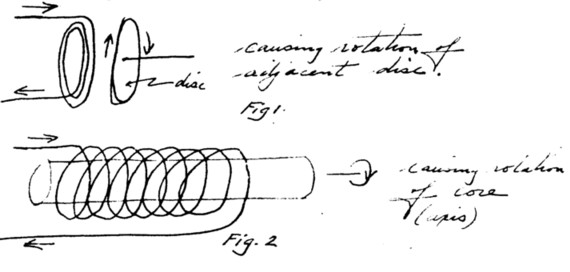 causing rotation of
adjacent disc.
disc
Fig 1.
causing rotation
of core
(axis)
Fig. 2